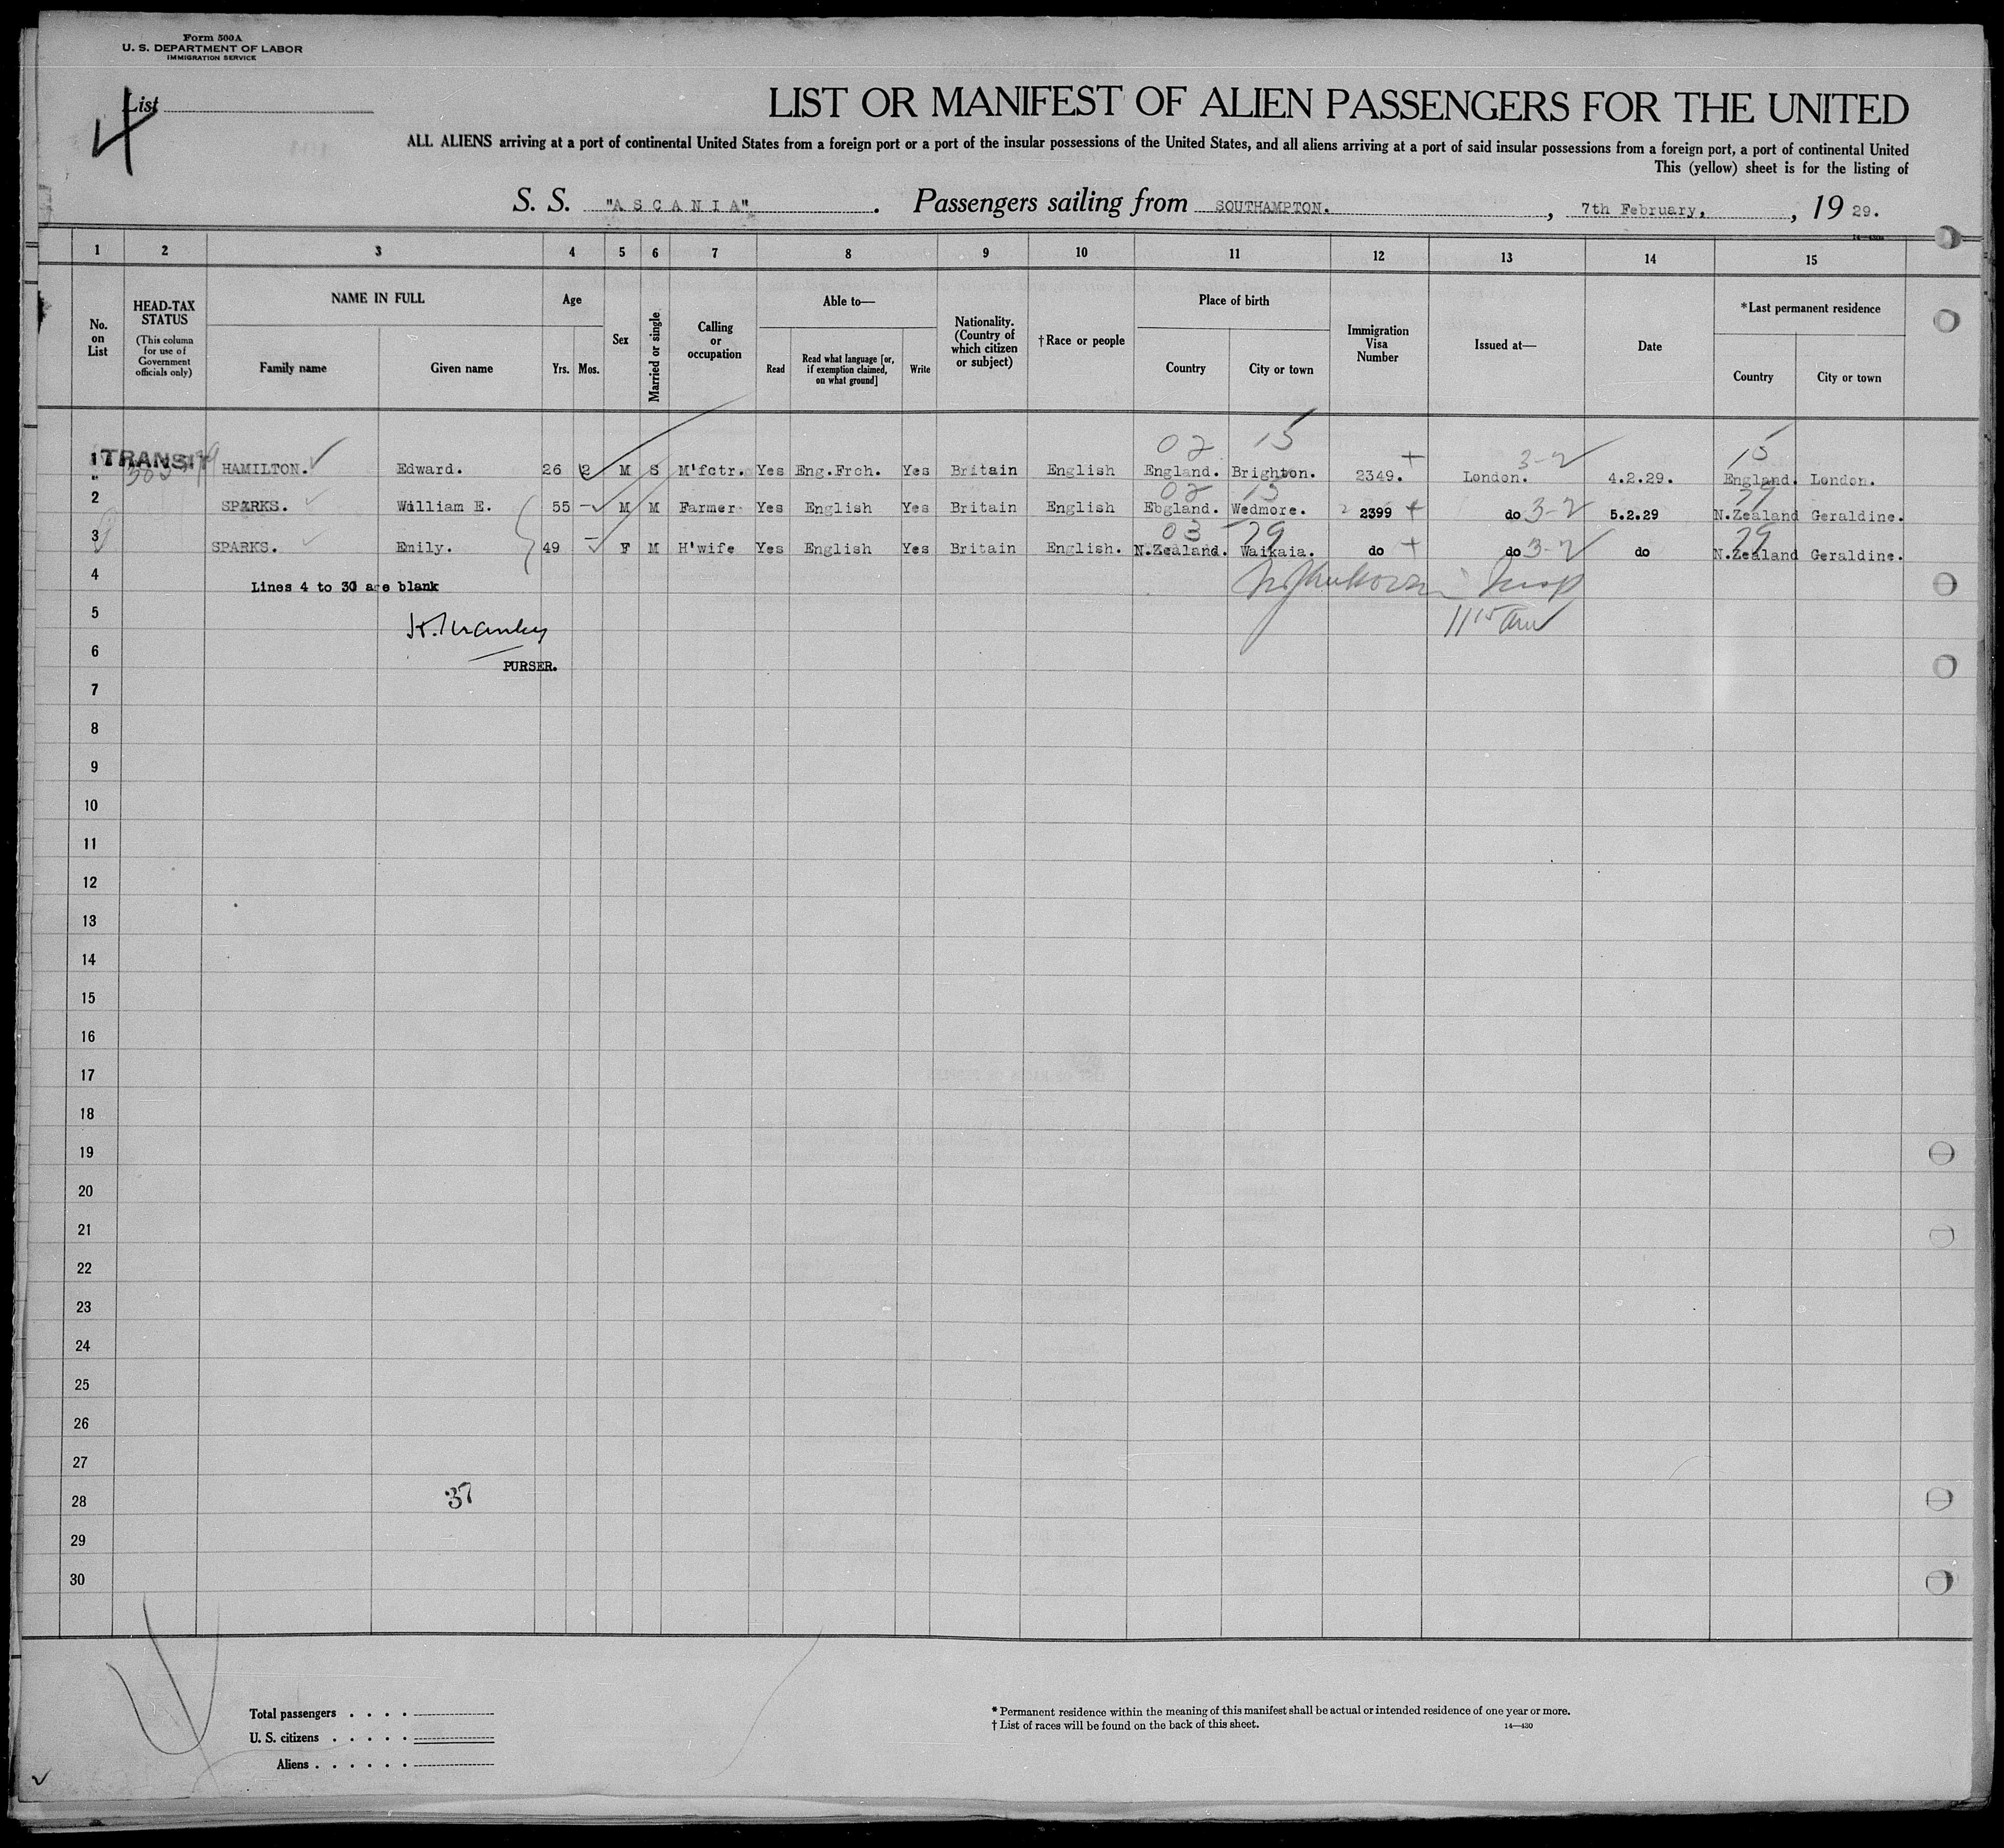 Form 500A
U. S. DEPARTMENT OF LABOR
IMMIGRATION SERVICE
List
4
LIST OR MANIFEST OF ALIEN PASSENGERS FOR THE UNITED
ALL ALIENS arriving at a port of continental United States from a foreign port or a port of the insular possessions of the United States, and all aliens arriving at a port of said insular possessions from a foreign port, a port of continental United
This (yellow) sheet is for the listing of
S. S. "ASCANIA". Passengers sailing from SOUTHAMPTON., 7th February, , 19 29.
1 2 3 4 5 6 7 8 9 10 11 12 13 14 15
No. on List
HEAD-TAX STATUS
(This column for use of Government officials only)
NAME IN FULL
Family name
Given name
Age
Yrs. Mos.
Sex
Married or single
Calling or occupation
Able to—
Read
Read what language [or, if exemption claimed, on what ground]
Write
Nationality. (Country of which citizen or subject)
†Race or people
Place of birth
Country
City or town
Immigration Visa Number
Issued at—
Date
*Last permanent residence
Country
City or town
02 15 3-2 15
1 TRANSIT HAMILTON. Edward. 26 2 M S M'fctr. Yes Eng.Frch. Yes Britain English England. Brighton. 2349. London. 4.2.29. England. London.
02 15 79
2 SPARKS. William E. 55 - M M Farmer Yes English Yes Britain English Ebgland. Wedmore. 2399 do 3-2 5.2.29 N.Zealand Geraldine.
03 79 79
3 SPARKS. Emily. 49 - F M H'wife Yes English Yes Britain English. N.Zealand. Waikaia. do do 3-2 do N.Zealand Geraldine.
4 Lines 4 to 30 are blank
5 11 15 am
6
PURSER.
7
8
9
10
11
12
13
14
15
16
17
18
19
20
21
22
23
24
25
26
27
28 37
29
30
Total passengers . . . .
U. S. citizens . . . . .
Aliens . . . . . .
* Permanent residence within the meaning of this manifest shall be actual or intended residence of one year or more.
† List of races will be found on the back of this sheet.
14—430